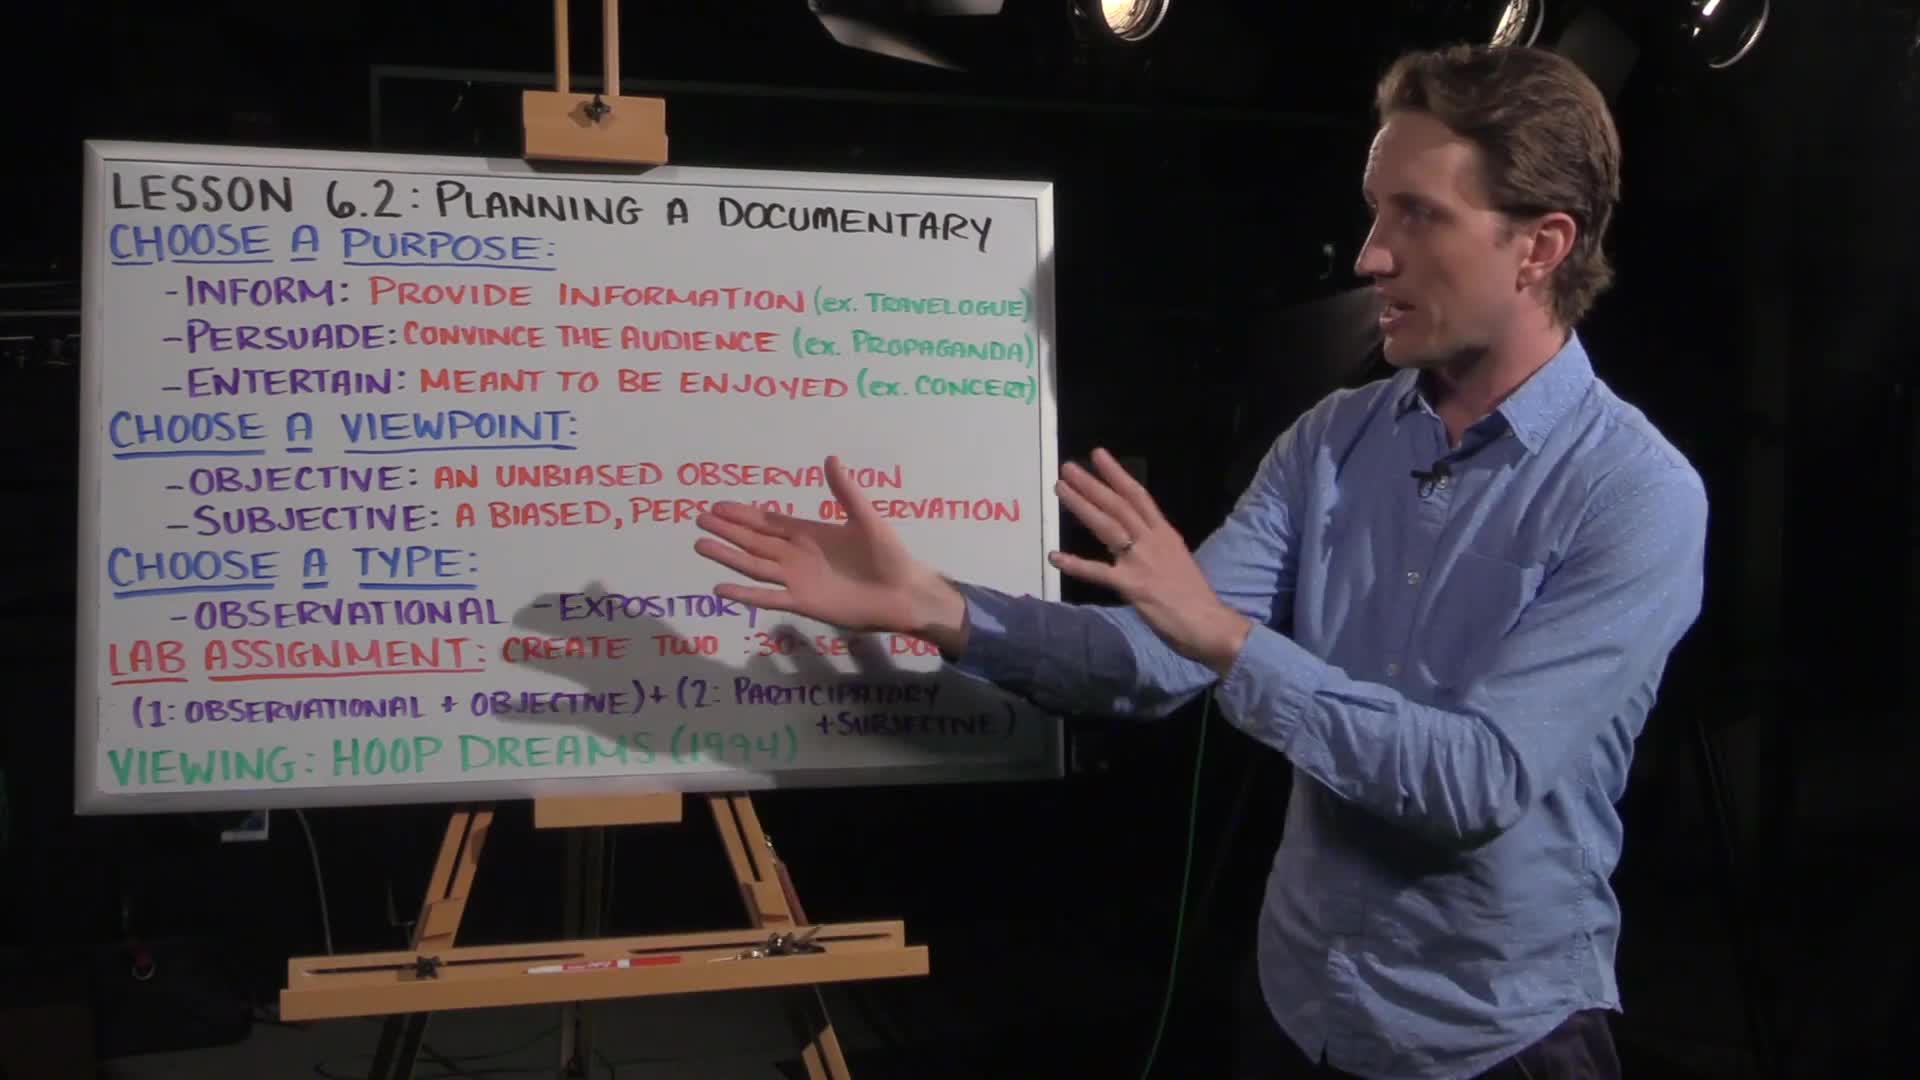 LESSON 6.2: PLANNING A DOCUMENTARY
CHOOSE A PURPOSE:
-INFORM: PROVIDE INFORMATION (ex. TRAVELOGUE)
-PERSUADE: CONVINCE THE AUDIENCE (ex. PROPAGANDA)
-ENTERTAIN: MEANT TO BE ENJOYED (ex. CONCERT)
CHOOSE A VIEWPOINT:
-OBJECTIVE: AN UNBIASED OBSERVATION
-SUBJECTIVE: A BIASED, PERSONAL OBSERVATION
CHOOSE A TYPE:
-OBSERVATIONAL -EXPOSITORY
LAB ASSIGNMENT: CREATE TWO :30-SEC
(1: OBSERVATIONAL + OBJECTIVE) + (2: PARTICIPATORY
+SUBJECTIVE)
VIEWING: HOOP DREAMS (1994)